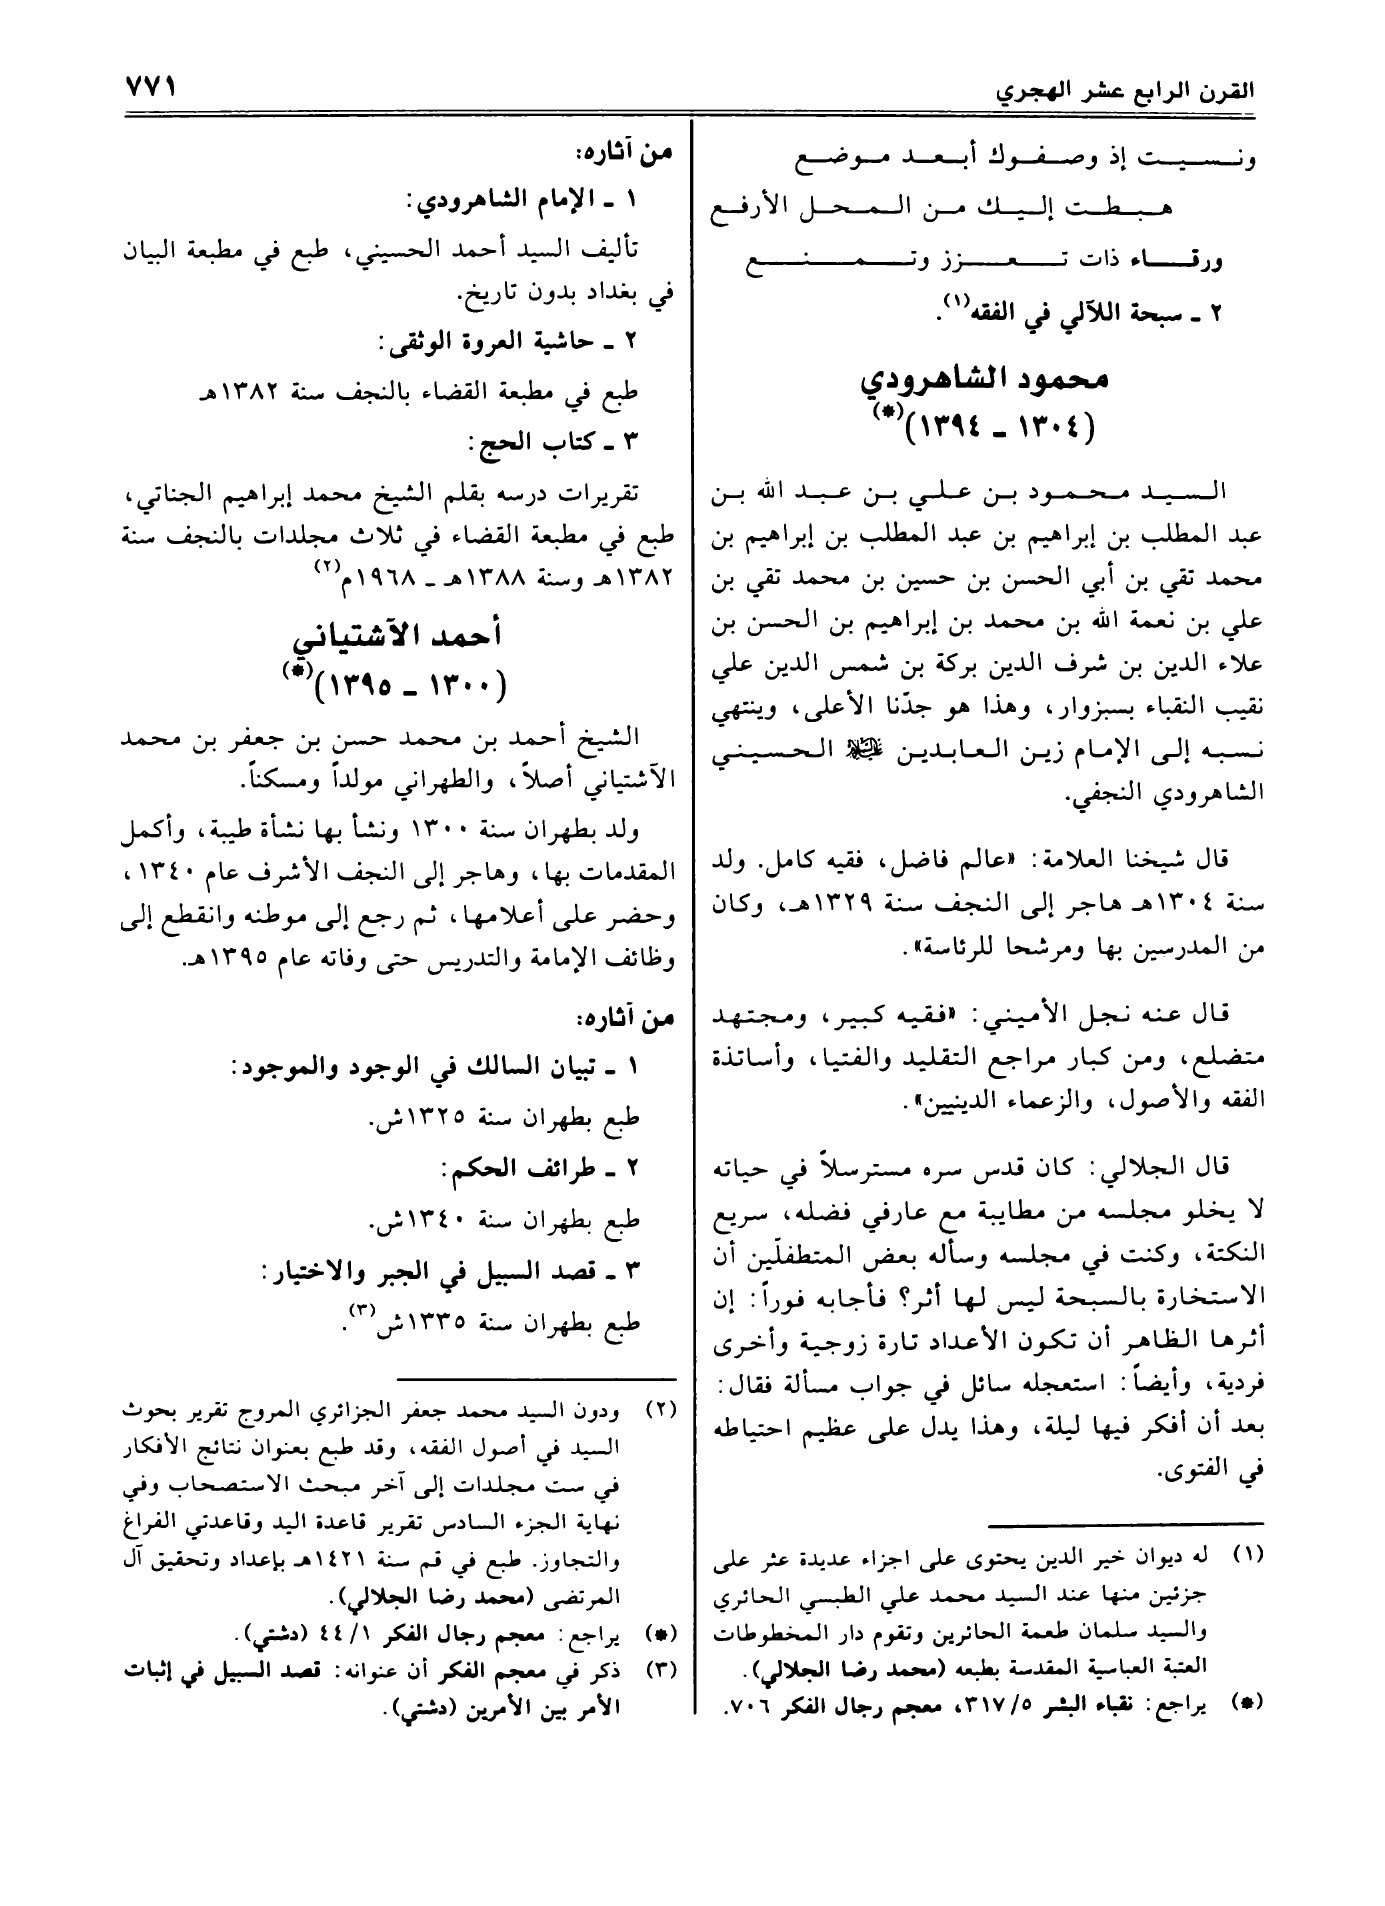 القرن الرابع عشر الهجري
٧٧١
ونسيت إذ وصفوك أبعد موضع
هبطت إليك من المحل الأرفع
ورقاء ذات تعزز وتمنع
٢ ـ سبحة اللآلي في الفقه(١).
محمود الشاهرودي
(١٣٠٤ ـ ١٣٩٤)(*)
السيد محمود بن علي بن عبد الله بن
عبد المطلب بن إبراهيم بن عبد المطلب بن إبراهيم بن
محمد تقي بن أبي الحسن بن حسين بن محمد تقي بن
علي بن نعمة الله بن محمد بن إبراهيم بن الحسن بن
علاء الدين بن شرف الدين بركة بن شمس الدين علي
نقيب النقباء بسبزوار، وهذا هو جدّنا الأعلى، وينتهي
نسبه إلى الإمام زين العابدين عليه السلام الحسيني
الشاهرودي النجفي.
قال شيخنا العلامة: «عالم فاضل، فقيه كامل. ولد
سنة ١٣٠٤هـ هاجر إلى النجف سنة ١٣٢٩هـ، وكان
من المدرسين بها ومرشحا للرئاسة».
قال عنه نجل الأميني: «فقيه كبير، ومجتهد
متضلع، ومن كبار مراجع التقليد والفتيا، وأساتذة
الفقه والأصول، والزعماء الدينيين».
قال الجلالي: كان قدس سره مسترسلاً في حياته
لا يخلو مجلسه من مطايبة مع عارفي فضله، سريع
النكتة، وكنت في مجلسه وسأله بعض المتطفلّين أن
الاستخارة بالسبحة ليس لها أثر؟ فأجابه فوراً: إن
أثرها الظاهر أن تكون الأعداد تارة زوجية وأخرى
فردية، وأيضاً: استعجله سائل في جواب مسألة فقال:
بعد أن أفكر فيها ليلة، وهذا يدل على عظيم احتياطه
في الفتوى.
(١) له ديوان خير الدين يحتوى على اجزاء عديدة عثر على
جزئين منها عند السيد محمد علي الطبسي الحائري
والسيد سلمان طعمة الحائرين وتقوم دار المخطوطات
العتبة العباسية المقدسة بطبعه (محمد رضا الجلالي).
(*) يراجع: نقباء البشر ٣١٧/٥، معجم رجال الفكر ٧٠٦.
من آثاره:
١ ـ الإمام الشاهرودي:
تأليف السيد أحمد الحسيني، طبع في مطبعة البيان
في بغداد بدون تاريخ.
٢ ـ حاشية العروة الوثقى:
طبع في مطبعة القضاء بالنجف سنة ١٣٨٢هـ
٣ ـ كتاب الحج:
تقريرات درسه بقلم الشيخ محمد إبراهيم الجناتي،
طبع في مطبعة القضاء في ثلاث مجلدات بالنجف سنة
١٣٨٢هـ وسنة ١٣٨٨هـ ـ ١٩٦٨م(٢)
أحمد الآشتياني
(١٣٠٠ ـ ١٣٩٥)(*)
الشيخ أحمد بن محمد حسن بن جعفر بن محمد
الآشتياني أصلاً، والطهراني مولداً ومسكناً.
ولد بطهران سنة ١٣٠٠ ونشأ بها نشأة طيبة، وأكمل
المقدمات بها، وهاجر إلى النجف الأشرف عام ١٣٤٠،
وحضر على أعلامها، ثم رجع إلى موطنه وانقطع إلى
وظائف الإمامة والتدريس حتى وفاته عام ١٣٩٥هـ.
من آثاره:
١ ـ تبيان السالك في الوجود والموجود:
طبع بطهران سنة ١٣٢٥ش.
٢ ـ طرائف الحكم:
طبع بطهران سنة ١٣٤٠ش.
٣ ـ قصد السبيل في الجبر والاختيار:
طبع بطهران سنة ١٣٣٥ش(٣).
(٢) ودون السيد محمد جعفر الجزائري المروج تقرير بحوث
السيد في أصول الفقه، وقد طبع بعنوان نتائج الأفكار
في ست مجلدات إلى آخر مبحث الاستصحاب وفي
نهاية الجزء السادس تقرير قاعدة اليد وقاعدتي الفراغ
والتجاوز. طبع في قم سنة ١٤٢١هـ بإعداد وتحقيق آل
المرتضى (محمد رضا الجلالي).
(*) يراجع: معجم رجال الفكر ٤٤/١ (دشتي).
(٣) ذكر في معجم الفكر أن عنوانه: قصد السبيل في إثبات
الأمر بين الأمرين (دشتي).